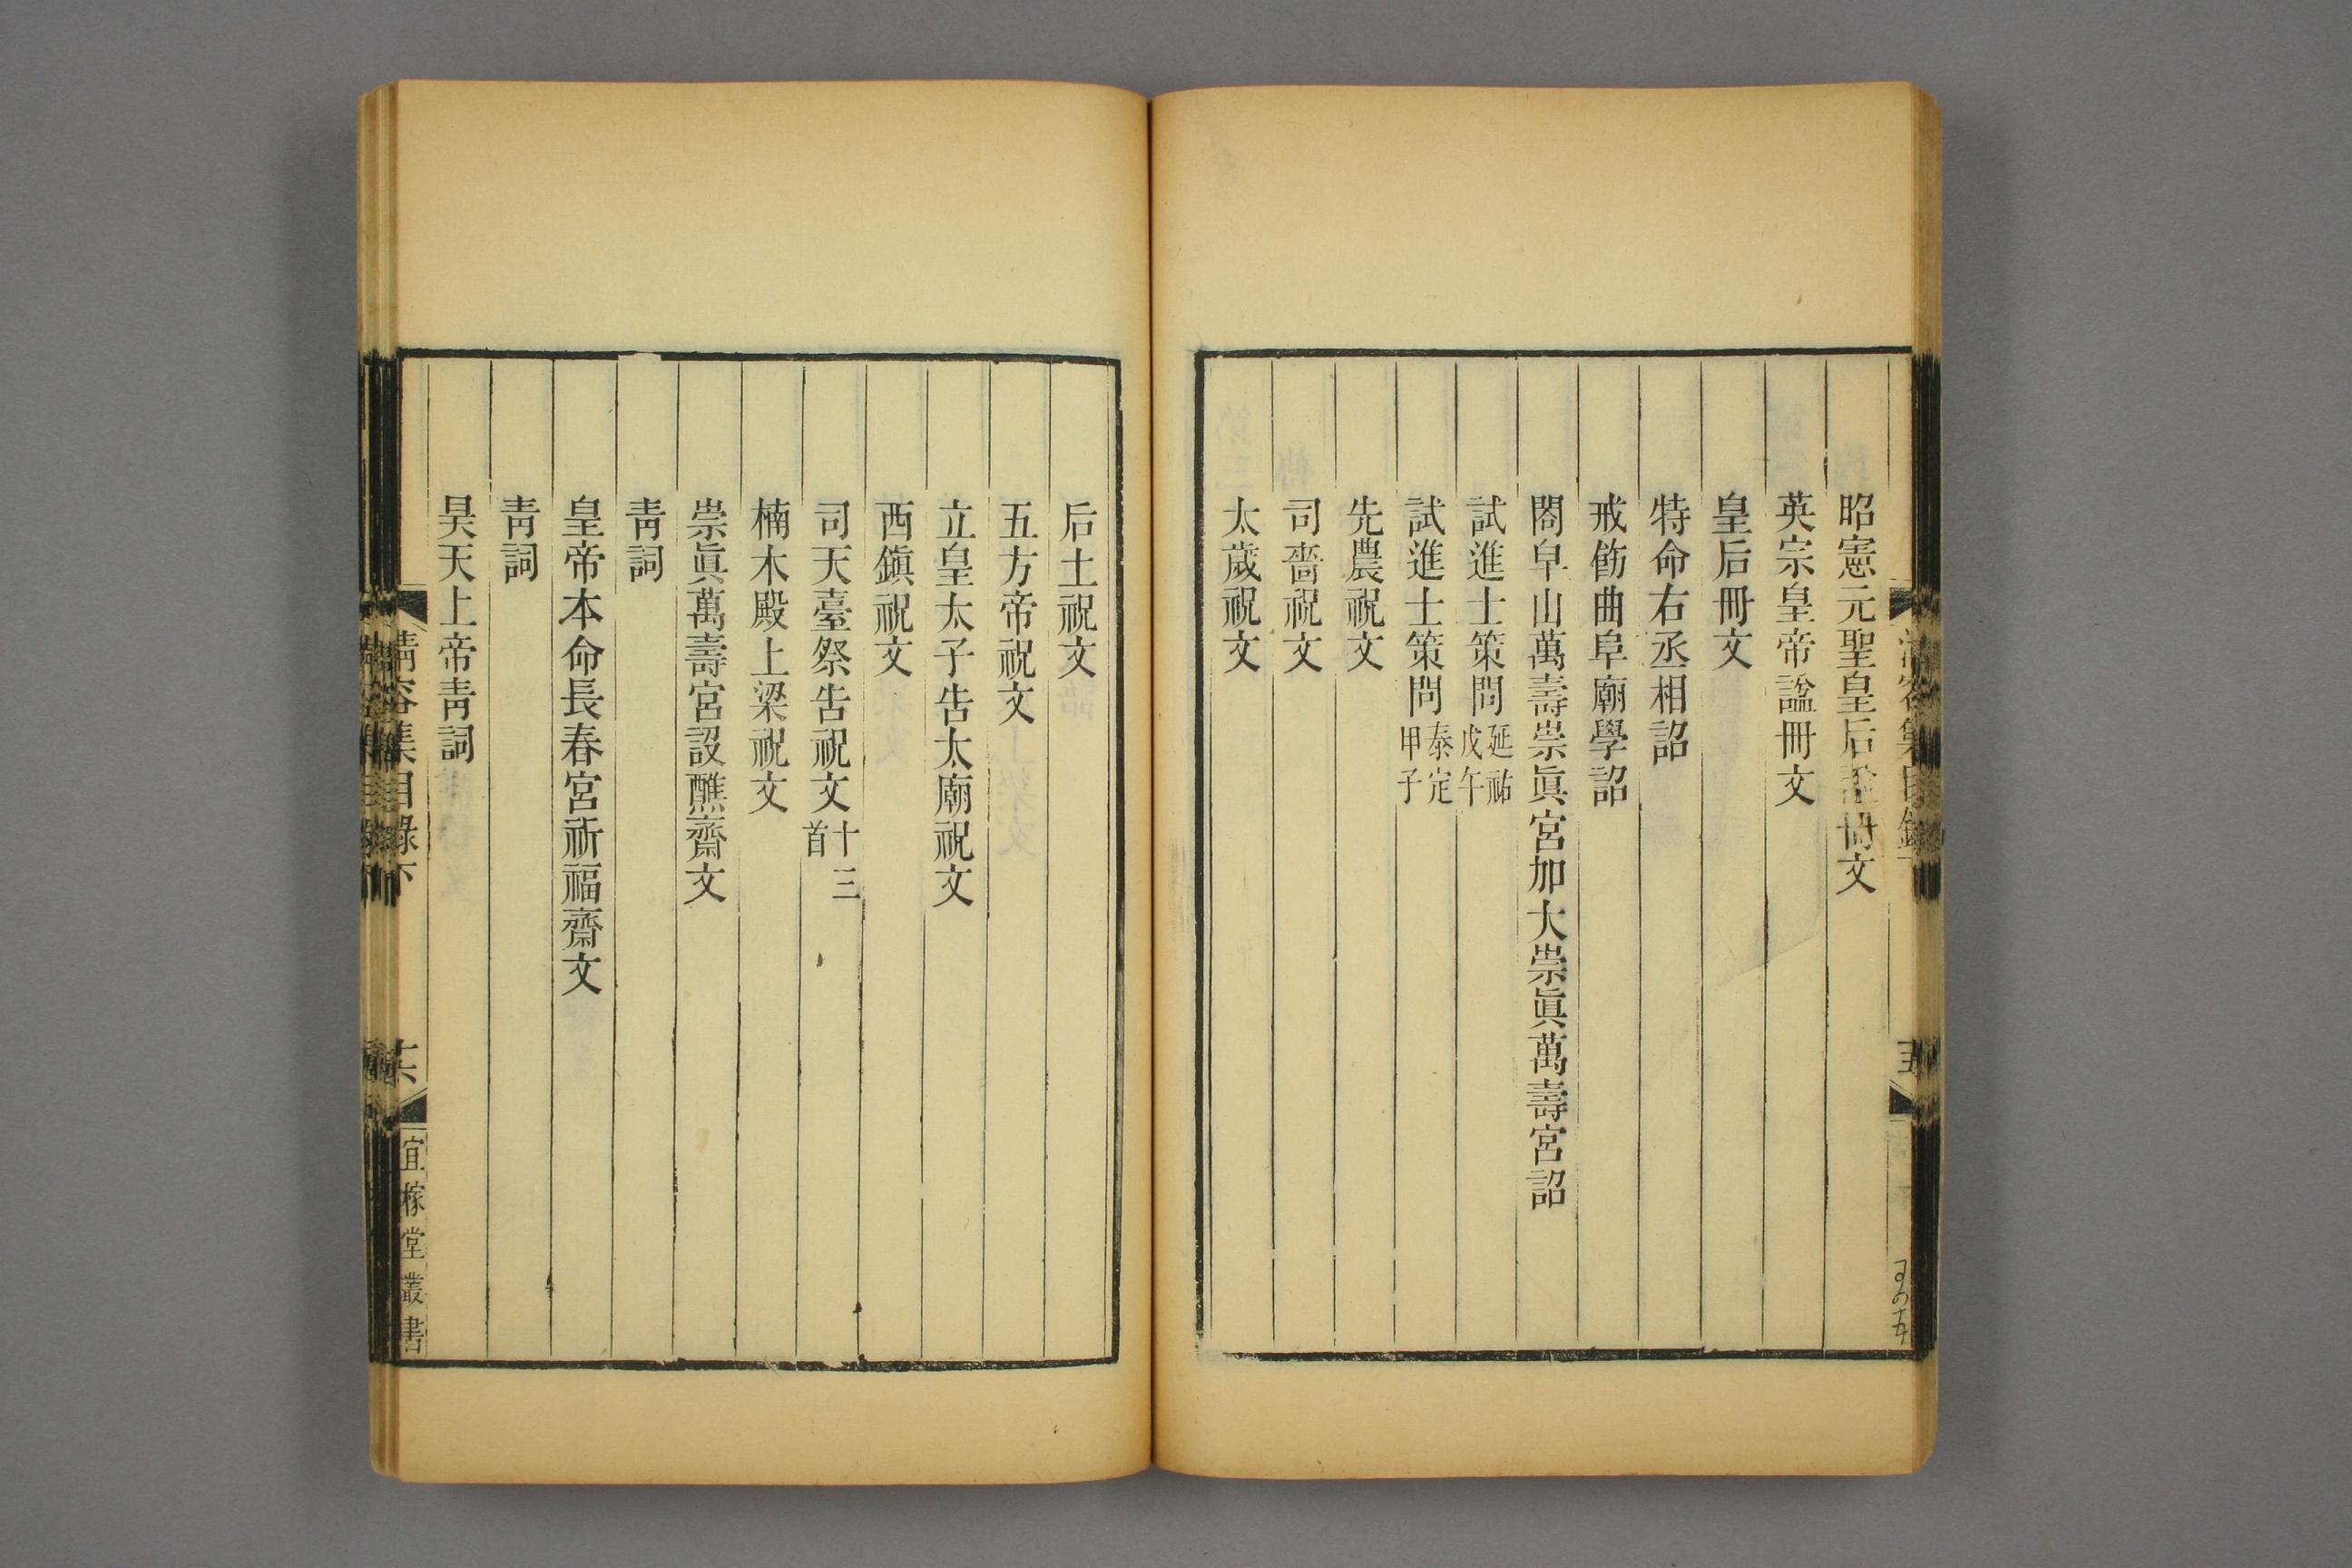 昭憲元聖皇后諡冊文
英宗皇帝諡冊文
皇后冊文
特命右丞相詔
戒飭曲阜廟學詔
閤皁山萬壽崇眞宮加大崇眞萬壽宮詔
試進士策問延祐戊午
試進士策問泰定甲子
先農祝文
司嗇祝文
太歲祝文
后土祝文
五方帝祝文
立皇太子告太廟祝文
西鎭祝文
司天臺祭告祝文十三首
楠木殿上梁祝文
崇眞萬壽宮設醮齋文
靑詞
皇帝本命長春宮祈福齋文
靑詞
昊天上帝靑詞
淸容集目錄下
六
宜稼堂叢書